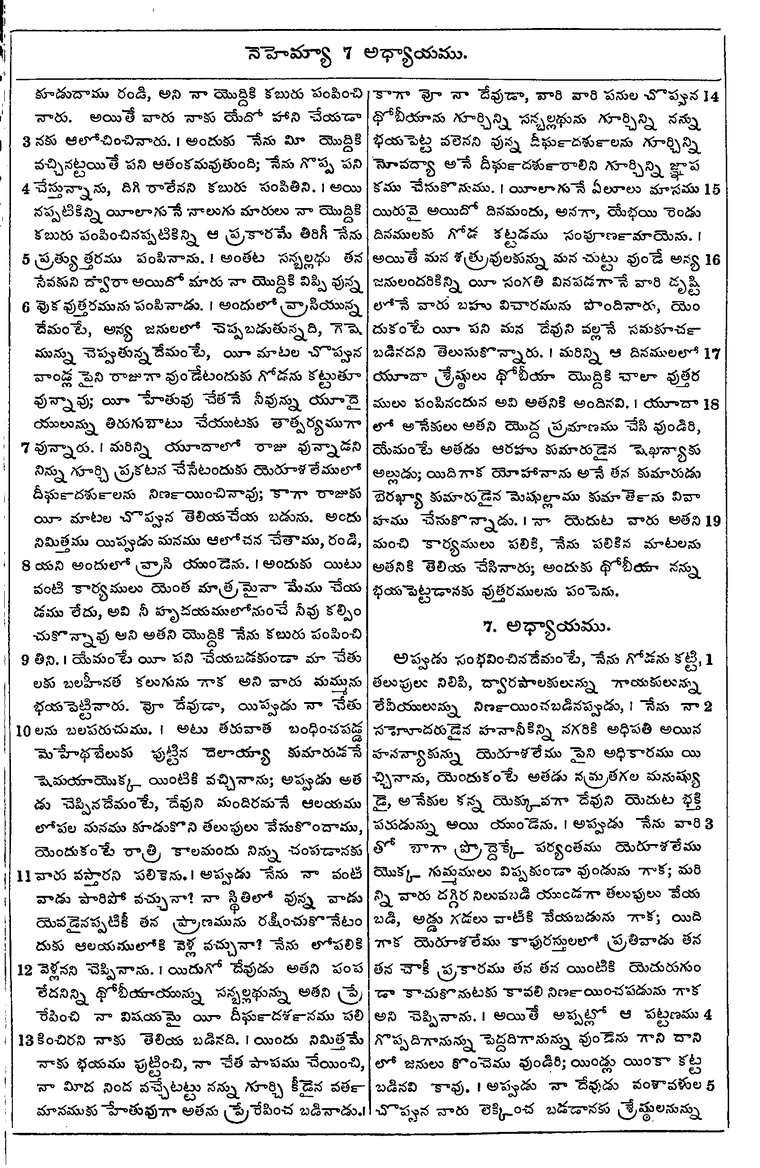 నెహెమ్యా 7 అధ్యాయము.
కూడుదాము రండి, అని నా యొద్దికి కబురు పంపించి
నారు. అయితే వారు నాకు యేదో హాని చేయడా
3 నకు ఆలోచించినారు. । అందుకు నేను మీ యొద్దికి
వచ్చినట్టయితే పని ఆతంకమవుతుంది; నేను గొప్ప పని
4 చేస్తున్నాను, దిగి రాలేనని కబురు పంపితిని. । అయి
నప్పటికిన్ని యీలాగునే నాలుగు మారులు నా యొద్దికి
కబురు పంపించినప్పటికిన్ని ఆ ప్రకారమే తిరిగీ నేను
5 ప్రత్యుత్తరము పంపినాను. । అంతట సన్బల్లథు తన
సేవకుని ద్వారా అయిదో మారు నా యొద్దికి విప్పి వున్న
6 వుక వుత్తరమును పంపినాడు. । అందులో వ్రాసియున్న
దేమంటే, అన్య జనులలో చెప్పబడుతున్నది, గెషె
మున్ను చెప్వుతున్నదేమంటే, యీ మాటల చొప్వున
వాండ్ల పైని రాజుగా వుండేటందుకు గోడను కట్టుతూ
వున్నావు; యీ హేతువు చేతనే నీవున్ను యూదై
యులున్ను తిరుగుబాటు చేయుటకు తాత్పర్యముగా
7 వున్నారు. । మరిన్ని యూదాలో రాజు వున్నాడని
నిన్ను గూర్చి ప్రకటన చేసేటందుకు యెరూశలేములో
దీర్ఘదర్శులను నిర్ణయించినావు; కాగా రాజుకు
యీ మాటల చొప్వున తెలియచేయ బడును. అందు
నిమిత్తము యిప్వుడు మనము ఆలోచన చేతాము, రండి,
8 యని అందులో వ్రాసి యుండెను. । అందుకు యిటు
వంటి కార్యములు యెంత మాత్రమైనా మేము చేయ
డము లేదు, అవి నీ హృదయములోనుంచే నీవు కల్పిం
చుకొన్నావు అని అతని యొద్దికి నేను కబురు పంపించి
9 తిని. । యేమంటే యీ పని చేయబడకుండా మా చేతు
లకు బలహీనత కలుగును గాక అని వారు మమ్మును
భయపెట్టినారు. వో దేవుడా, యిప్వుడు నా చేతు
10 లను బలపరుచుము. । అటు తరువాత బంధించపడ్డ
మెహేథబేలుకు పుట్టిన దెలాయ్యా కుమారుడనే
షెమయాయొక్క యింటికి వచ్చినాను; అప్వుడు అత
డు చెప్పినదేమంటే, దేవుని మందిరమనే ఆలయము
లోపల మనము కూడుకొని తలుపులు వేసుకొందాము,
యెందుకంటే రాత్రి కాలమందు నిన్ను చంపడానకు
11 వారు వస్తారని పలికెను. । అప్వుడు నేను నా వంటి
వాడు పారిపో వచ్చునా? నా స్థితిలో వున్న వాడు
యెవడైనప్పటికీ తన ప్రాణమును రక్షించుకొనేటం
దుకు ఆలయములోకి వెళ్ల వచ్చునా? నేను లోపలికి
12 వెళ్లనని చెప్పినాను. । యిదుగో దేవుడు అతని పంప
లేదనిన్ని థోబీయాయున్ను సన్బల్లథున్ను అతని ప్రే
రేపించి నా విషయమై యీ దీర్ఘదర్శనము పలి
13 కించిరని నాకు తెలియ బడినది. । యిందు నిమిత్తమే
నాకు భయము పుట్టించి, నా చేత పాపము చేయించి,
నా మీద నింద వచ్చేటట్టు నన్ను గూర్చి కీడైన వర్త
మానముకు హేతువుగా అతను ప్రేరేపించ బడినాడు.।
కాగా వో నా దేవుడా, వారి వారి పనుల చొప్వున 14
థోబీయాను గూర్చిన్ని సన్బల్లథును గూర్చిన్ని నన్ను
భయపెట్ట వలెనని వున్న దీర్ఘదర్శులను గూర్చిన్ని
మోవద్యా అనే దీర్ఘదర్శురాలిని గూర్చిన్ని జ్ఞాప
కము చేసుకొనుము. । యీలాగునే ఏలూలు మాసము 15
యిరువై అయిదో దినమందు, అనగా, యేభయి రెండు
దినములకు గోడ కట్టడము సంపూర్ణమాయెను. ।
అయితే మన శత్రువులకున్ను మన చుట్టు వుండే అన్య 16
జనులందరికిన్ని యీ సంగతి వినపడగానే వారి దృష్టి
లోనే వారు బహు విచారమును పొందినారు, యెం
దుకంటే యీ పని మన దేవుని వల్లనే సమకూర్చ
బడినదని తెలుసుకొన్నారు. । మరిన్ని ఆ దినములలో 17
యూదా శ్రేష్ఠులు థోబీయా యొద్దికి చాలా వుత్తర
ములు పంపినందున అవి అతనికి అందినవి. । యూదా 18
లో అనేకులు అతని యొద్ద ప్రమాణము చేసి వుండిరి,
యేమంటే అతడు ఆరహు కుమారుడైన షెఖన్యాకు
అల్లుడు; యిదిగాక యోహానాను అనే తన కుమారుడు
బెరఖ్యా కుమారుడైన మెషుల్లాము కుమార్తెను వివా
హము చేసుకొన్నాడు. । నా యెదుట వారు అతని 19
మంచి కార్యములు పలికి, నేను పలికిన మాటలను
అతనికి తెలియ చేసినారు; అందుకు థోబీయా నన్ను
భయపెట్టడానకు వుత్తరములను పంపెను.
7. అధ్యాయము.
అప్వుడు సంభవించినదేమంటే, నేను గోడను కట్టి, 1
తలుపులు నిలిపి, ద్వారపాలకులున్ను గాయకులున్ను
లేవీయులున్ను నిర్ణయించబడినప్వుడు, । నేను నా 2
సహోదరుడైన హనానీకిన్ని నగరికి అధిపతి అయిన
హనన్యాకున్ను యెరూశలేము పైని అధికారము యి
చ్చినాను, యెందుకంటే అతడు నమ్రతగల మనుష్యు
డై, అనేకుల కన్న యెక్కువగా దేవుని యెదుట భక్తి
పరుడున్ను అయి యుండెను. । అప్వుడు నేను వారి 3
తో బాగా ప్రొద్దెక్కే పర్యంతము యెరూశలేము
యొక్క గుమ్మములు విప్పకుండా వుండును గాక; మరి
న్ని వారు దగ్గిర నిలువబడి యుండగా తలుపులు వేయ
బడి, అడ్డు గడలు వాటికి వేయబడును గాక; యిది
గాక యెరూశలేము కాపురస్తులలో ప్రతివాడు తన
తన చౌకీ ప్రకారము తన తన యింటికి యెదురుగుం
డా కాచుకొనుటకు కావలి నిర్ణయించపడును గాక
అని చెప్పినాను. । అయితే అప్పట్లో ఆ పట్టణము 4
గొప్పదిగానున్ను పెద్దదిగానున్ను వుండెను గాని దాని
లో జనులు కొంచెము వుండిరి; యిండ్లు యింకా కట్ట
బడినవి కావు. । అప్వుడు నా దేవుడు వంశావళుల 5
చొప్వున వారు లెక్కించ బడడానకు శ్రేష్ఠులనున్ను